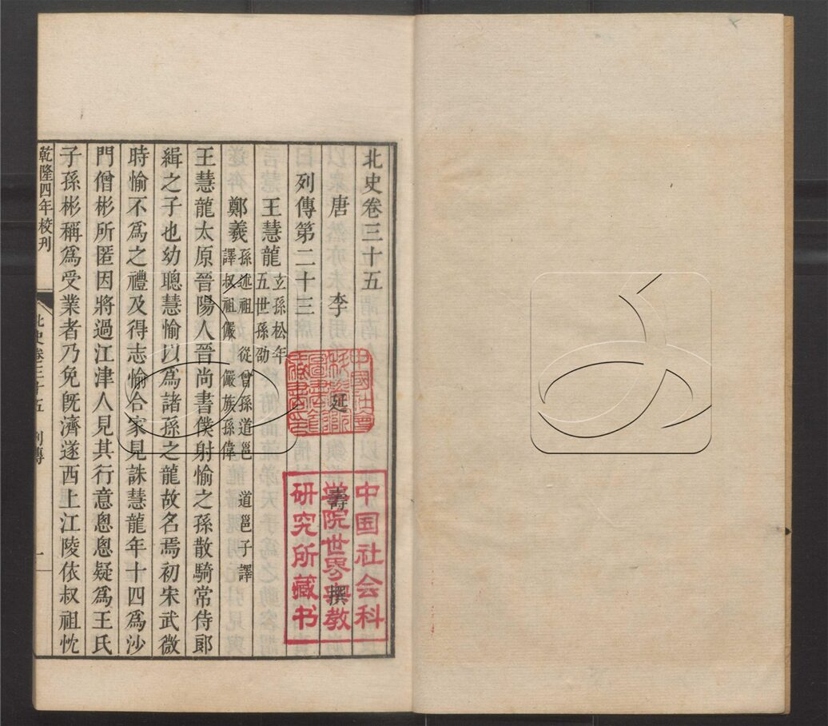 北史卷三十五
唐 李 延 壽 撰
列傳第二十三
王慧龍 玄孫松年 五世孫劭
鄭羲 孫述祖 從曾孫道邕 道邕子譯
譯叔祖儼 儼族孫偉
王慧龍太原晉陽人晉尚書僕射愉之孫散騎常侍郎
緝之子也幼聰慧愉以爲諸孫之龍故名焉初宋武微
時愉不爲之禮及得志愉合家見誅慧龍年十四爲沙
門僧彬所匿因將過江津人見其行意悤悤疑爲王氏
子孫彬稱爲受業者乃免旣濟遂西上江陵依叔祖忱
乾隆四年校刊
北史卷三十五 列傳
一
中国社会科
学院世界宗教
研究所藏书